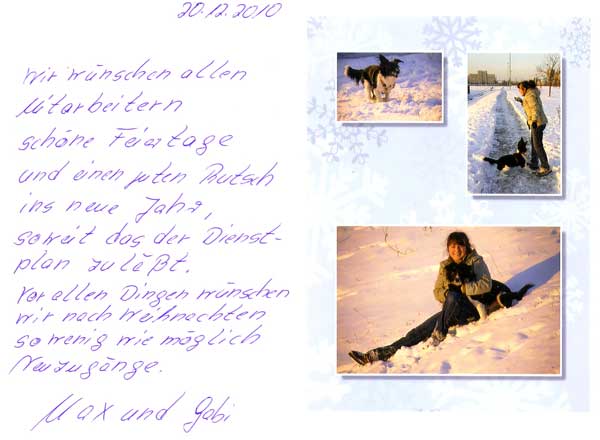 20.12.2010
Wir wünschen allen
Mitarbeitern
schöne Feiertage
und einen guten Rutsch
ins neue Jahr,
soweit das der Dienst-
plan zuläßt.
Vor allen Dingen wünschen
wir nach Weihnachten
so wenig wie möglich
Neuzugänge.
Max und Gabi